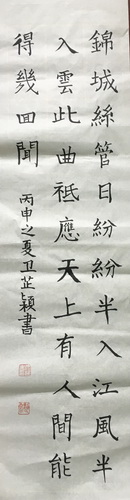 錦城絲管日紛紛半入江風半
入雲此曲祗應天上有人間能
得幾回聞
丙申之夏卫芷穎書